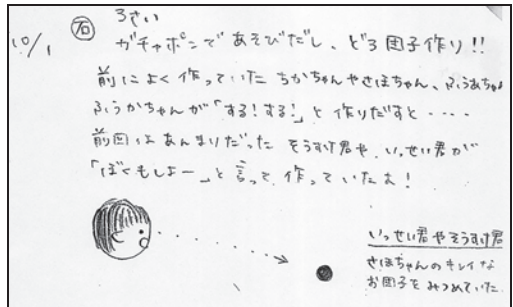 10/1 石 3さい
ガチャポンであそびだし、どろ団子作り!!
前によく作っていた ちかちゃんやさほちゃん、ふうあちゃん
ふうかちゃんが「する!する!」と作りだすと・・・・
前回はあんまりだった そうすけ君や、いっせい君が
「ぼくもしよー」と言って、作っていたよ!
いっせい君やそうすけ君
さほちゃんのキレイな
お団子をみつめていた